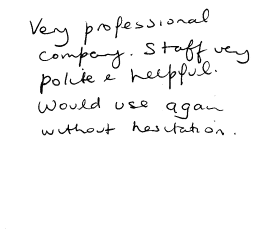 Very professional
company. Staff very
polite & helpful.
Would use again
without hesitation.